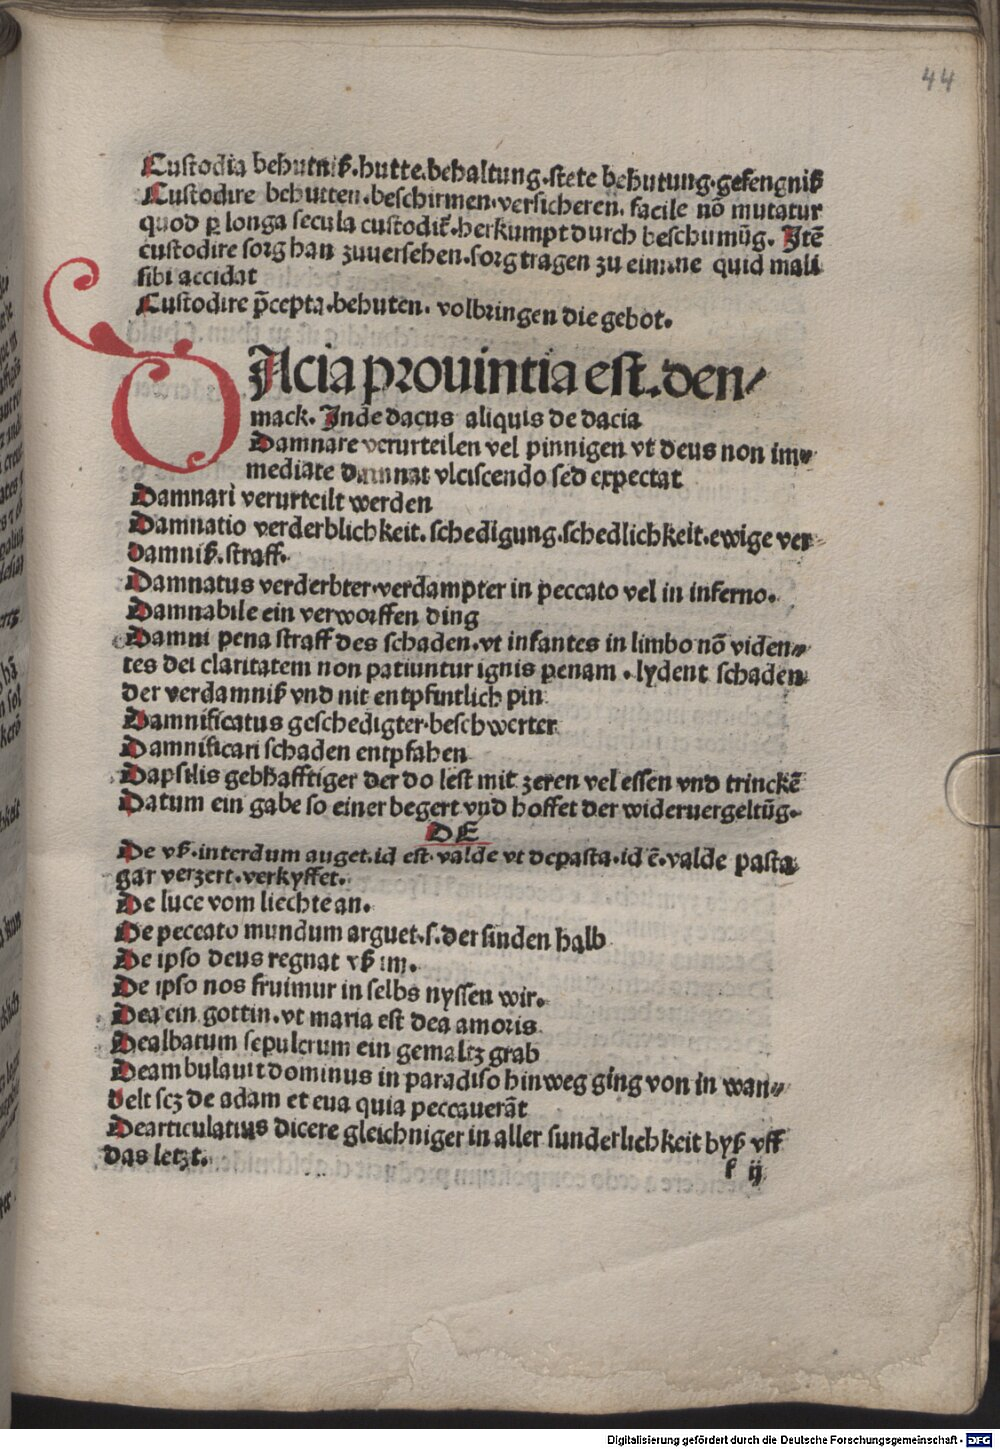 44
Custodia behutniß.hutte.behaltung.stete behutung.gefengniß
Custodire behutten.beschirmen.versicheren. facile nõ mutatur
quod ꝑ longa secula custodit̃.herkumpt durch beschirmũg. Itẽ
custodire sorg han zuuersehen.sorg tragen zu eim.ne quid mali
sibi accidat
Custodire p̃cepta.behuten. volbringen die gebot.
DAcia prouintia est.den⸗
mack. Inde dacus aliquis de dacia
Damnare verurteilen vel pinnigen vt deus non im⸗
mediate damnat vlciscendo sed expectat
Damnari verurteilt werden
Damnatio verderblichkeit.schedigung.schedlichkeit.ewige ver⸗
damniß.straff.
Damnatus verderbter.verdampter in peccato vel in inferno.
Damnabile ein verworffen ding
Damni pena straff des schaden.vt infantes in limbo nõ viden⸗
tes dei claritatem non patiuntur ignis penam.lydent schaden
der verdamniß vnd nit entpfintlich pin
Damnificatus geschedigter.beschwerter
Damnificari schaden entpfahen
Dapsilis gebhafftiger der do lest mit zeren vel essen vnd trinckẽ
Datum ein gabe so einer begert vnd hoffet der wideruergeltũg.
DE
De vß.interdum auget.id est.valde vt depasta.id ẽ.valde pasta
gar verzert.verkyffet.
De luce vom liechte an.
De peccato mundum arguet.s.der sinden halb
De ipso deus regnat vß im.
De ipso nos fruimur in selbs nyssen wir.
Dea ein gottin.vt maria est dea amoris
Dealbatum sepulcrum ein gemaltz grab
Deambulauit dominus in paradiso hinweg ging von in wan⸗
delt scz de adam et eua quia peccauerãt
Dearticulatius dicere gleichniger in aller sunderlichkeit byß vff
das letzt.
f ij
Digitalisierung gefördert durch die Deutsche Forschungsgemeinschaft - DFG